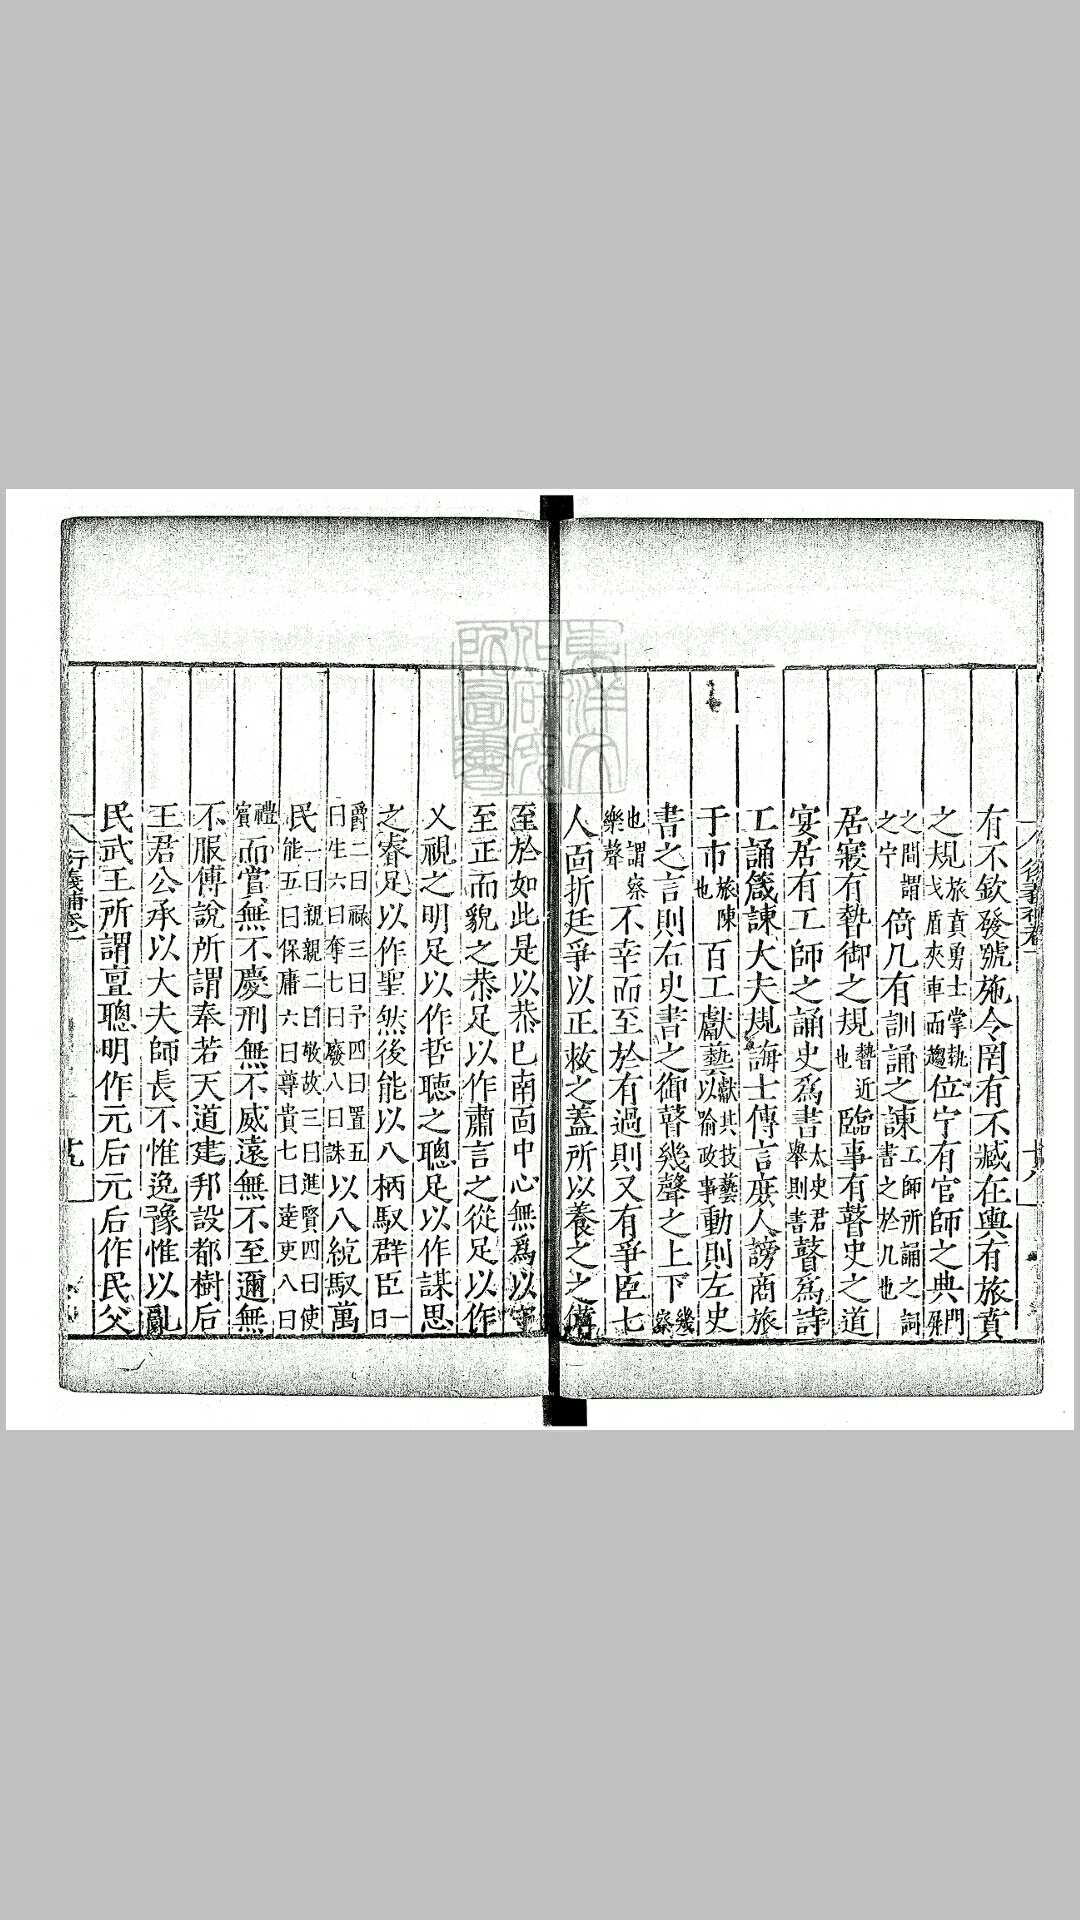 有不欽發號施令罔有不臧在輿有旅賁
之規旅賁勇士掌執戈盾夾車而趨位宁有官師之典門屏
之間謂之宁倚几有訓誦之諫工師所誦之詞書之於几也
居寢有暬御之規暬近也臨事有瞽史之道
宴居有工師之誦史爲書太史君舉則書瞽爲詩
工誦箴諫大夫規誨士傳言庶人謗商旅
于市旅陳也百工獻藝獻其技藝以喻政事動則左史
書之言則右史書之御瞽幾聲之上下幾察
也謂察樂聲不幸而至於有過則又有爭臣七
人面折廷爭以正救之蓋所以養之之備
至於如此是以恭已南面中心無爲以守
至正而貌之恭足以作肅言之從足以作
乂視之明足以作哲聽之聰足以作謀思
之睿足以作聖然後能以八柄馭群臣一曰
爵二曰祿三曰予四曰置五曰生六曰奪七曰廢八曰誅以八統馭萬
民一曰親親二曰敬故三曰進賢四曰使能五曰保庸六曰尊貴七曰達吏八曰
禮賓而賞無不慶刑無不威遠無不至邇無
不服傅說所謂奉若天道建邦設都樹后
王君公承以大夫師長不惟逸豫惟以亂
民武王所謂亶聰明作元后元后作民父
衍義補卷一